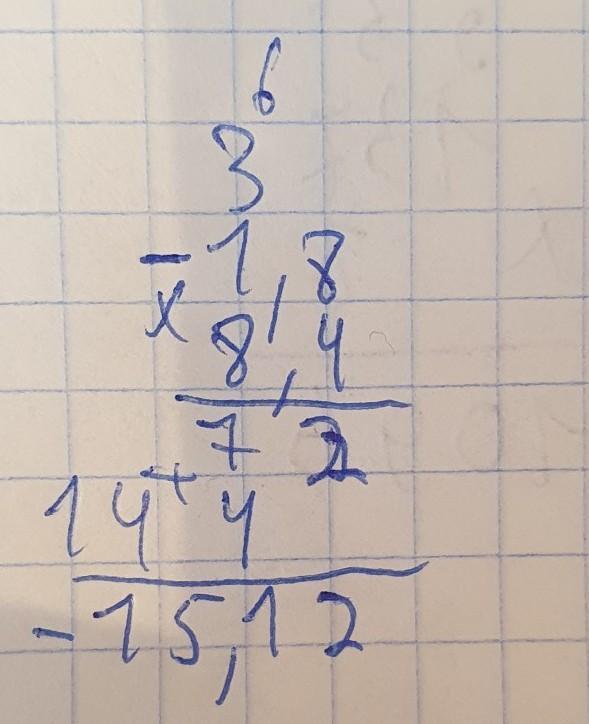 6
3
- 1,8
x 8,4
7 2
+
14 4
-15,12